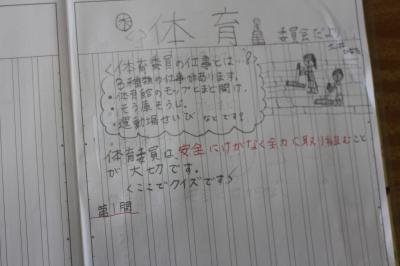 体育
委員会だより
<体育委員の仕事とは、
3種類の仕事があります。
・体育館のモップとまど開け。
・そう庫そうじ。
・運動場せいび などです。
体育委員は、安全にけがなく全力で取り組むこと
が大切です。
<ここでクイズです>
第1問